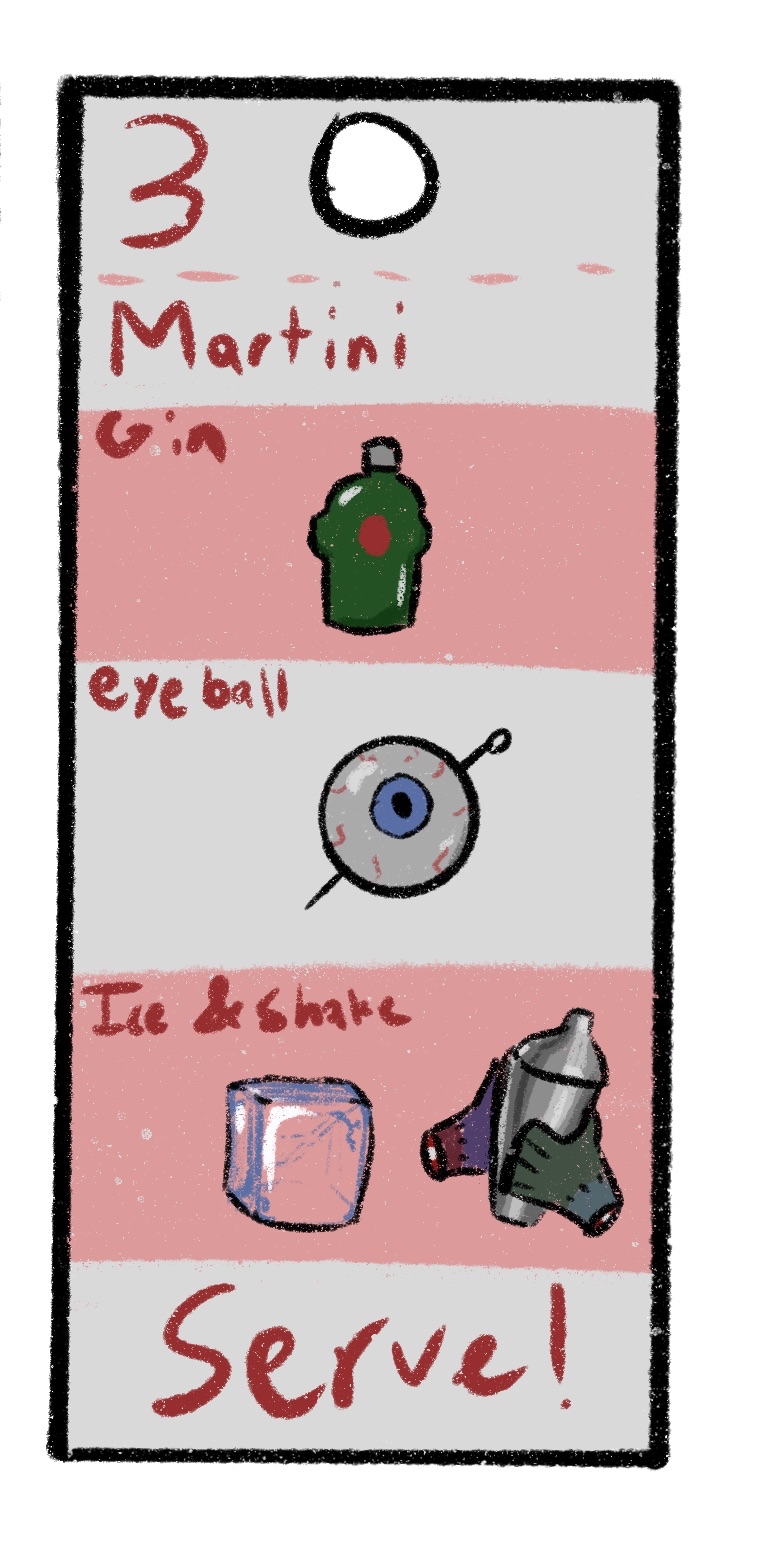 3
Martini
Gin
eyeball
Ice & Shake
Serve!